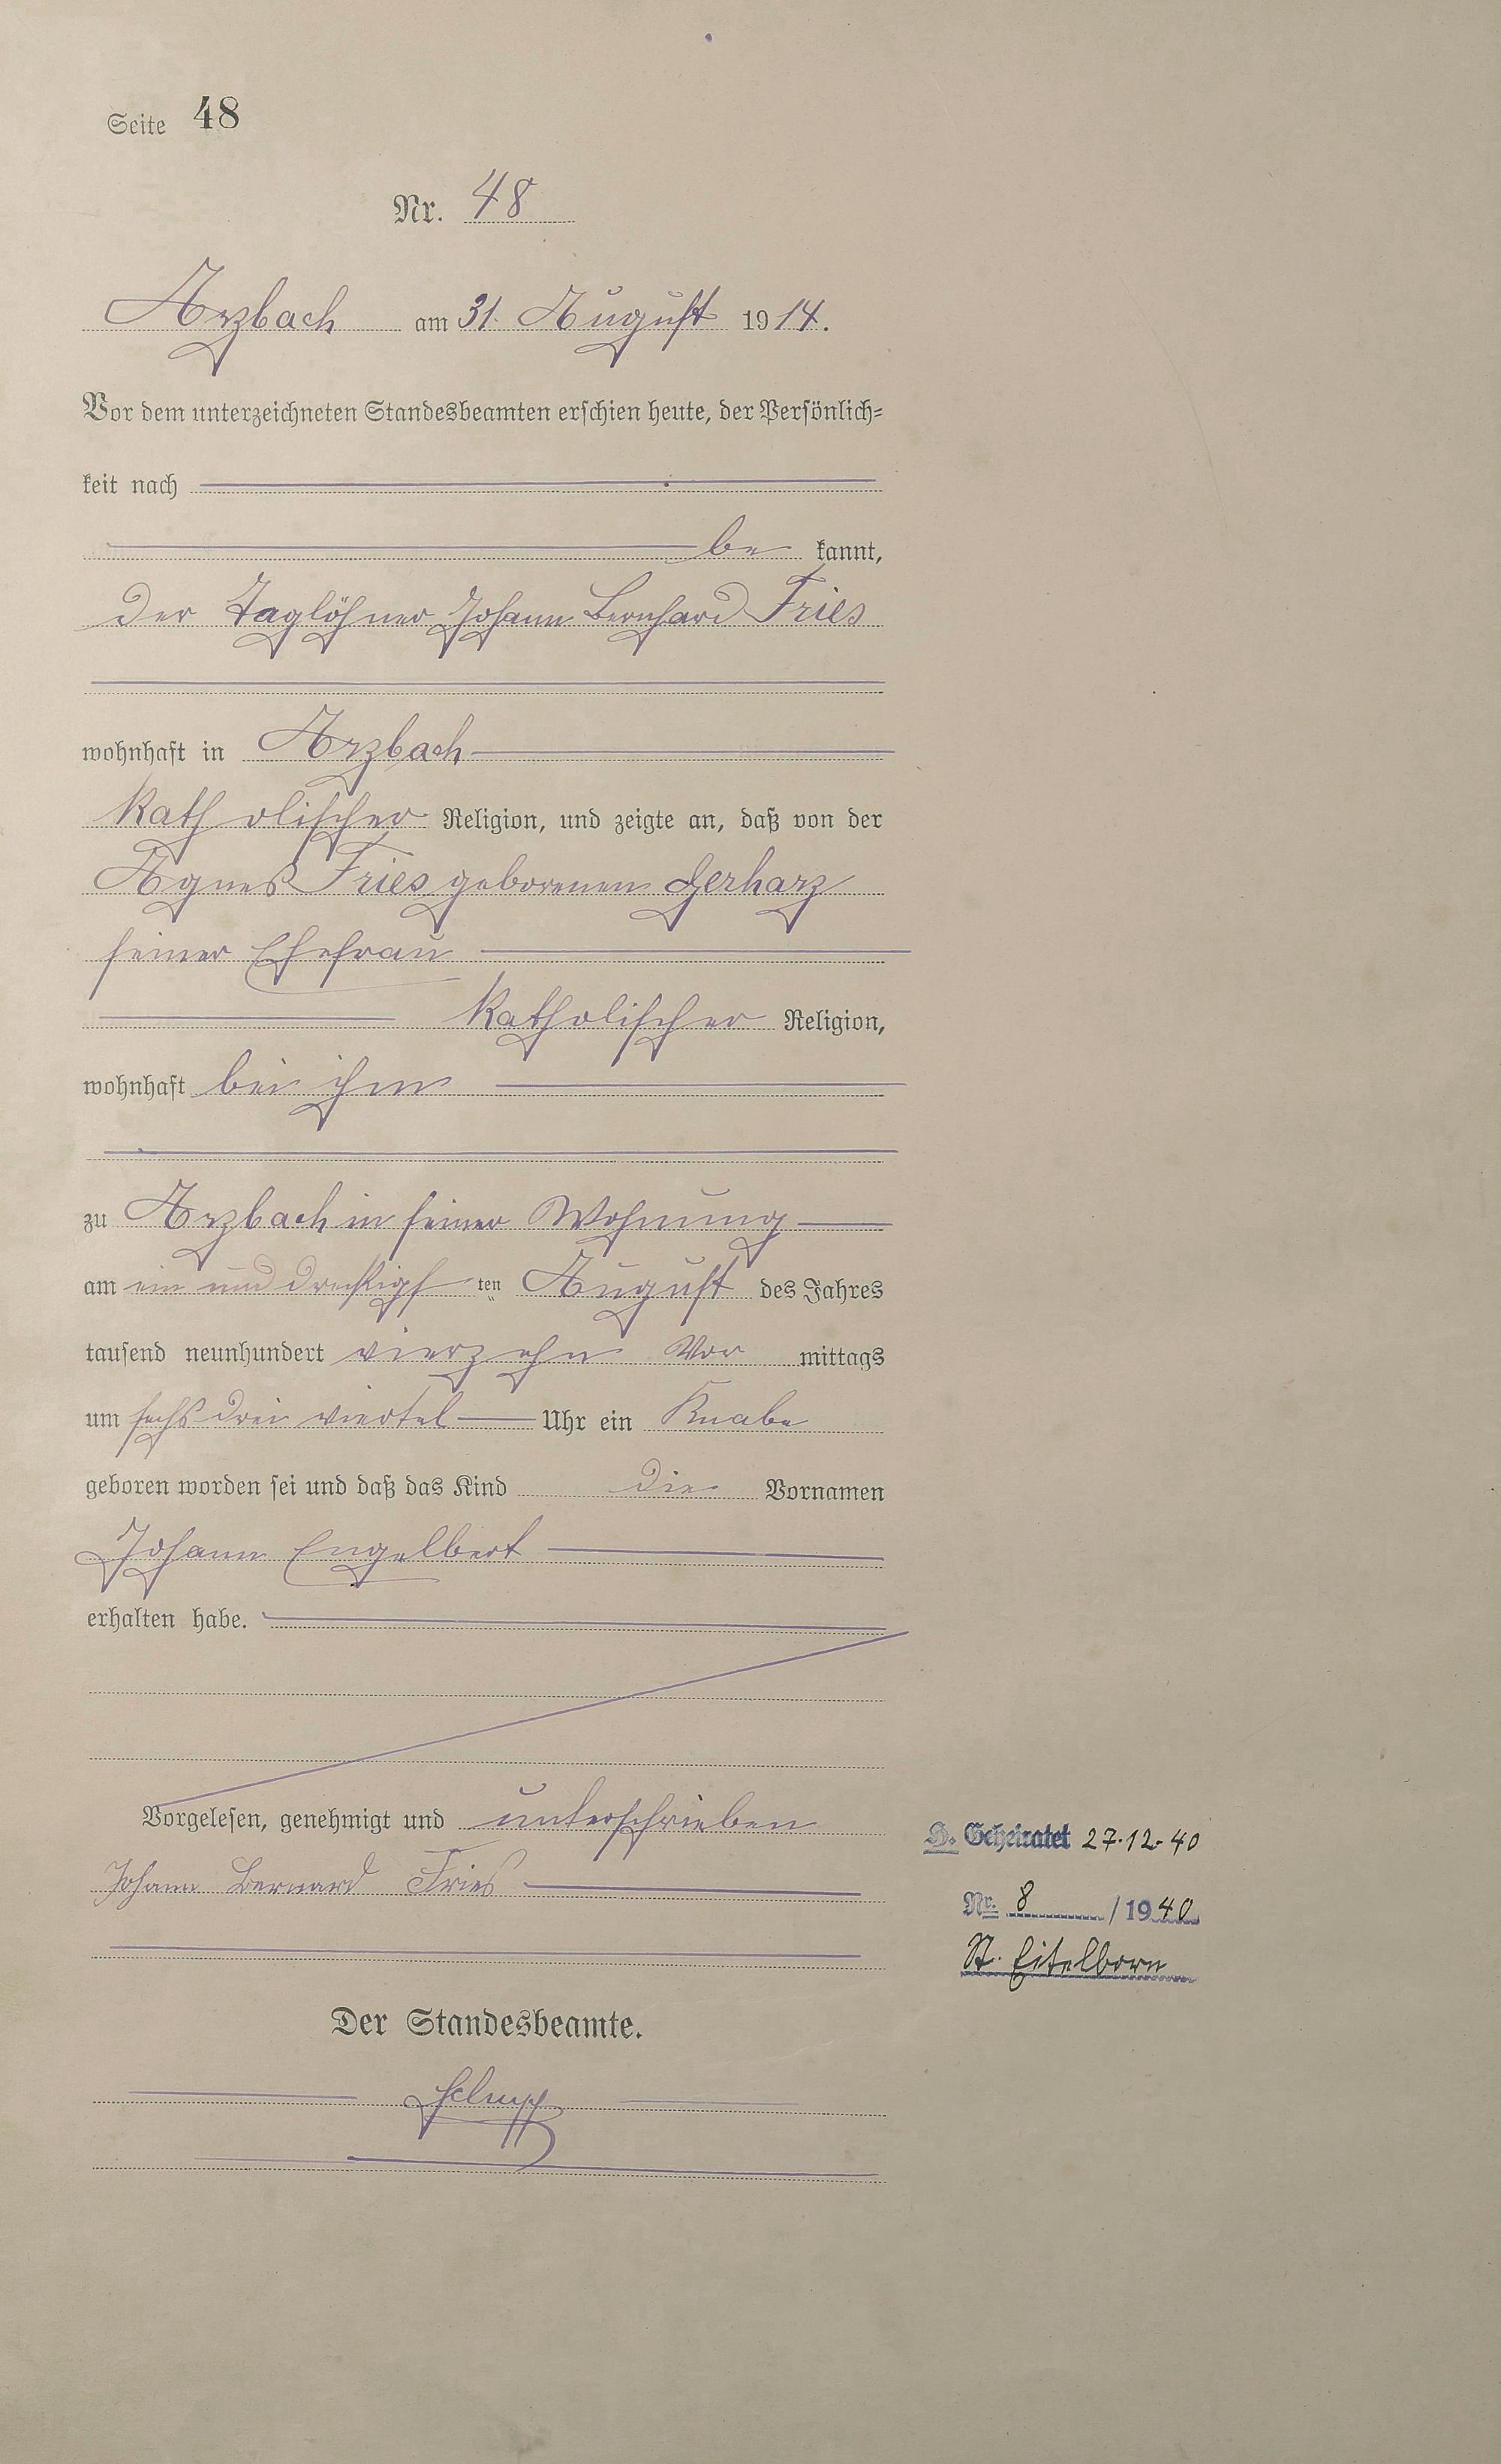 Seite 48
Nr. 48
Arzbach am 31. August 1914.
Vor dem unterzeichneten Standesbeamten erschien heute, der Persönlich-
keit nach
be kannt,
der Taglöhner Johann Bernhard Fries
wohnhaft in Arzbach
katholischer Religion, und zeigte an, daß von der
Agnes Fries geborenen Gerharz
seiner Ehefrau
katholischer Religion,
wohnhaft bei ihm
zu Arzbach in seiner Wohnung
am ein und dreißigsten August des Jahres
tausend neunhundert vierzehn Vor mittags
um sechs drei viertel Uhr ein Knabe
geboren worden sei und daß das Kind die Vornamen
Johann Engelbert
erhalten habe.
Vorgelesen, genehmigt und unterschrieben
Johann Bernard Fries
Der Standesbeamte.
Geheiratet 27.12.40
Nr. 8 / 1940
St. Eitelborn